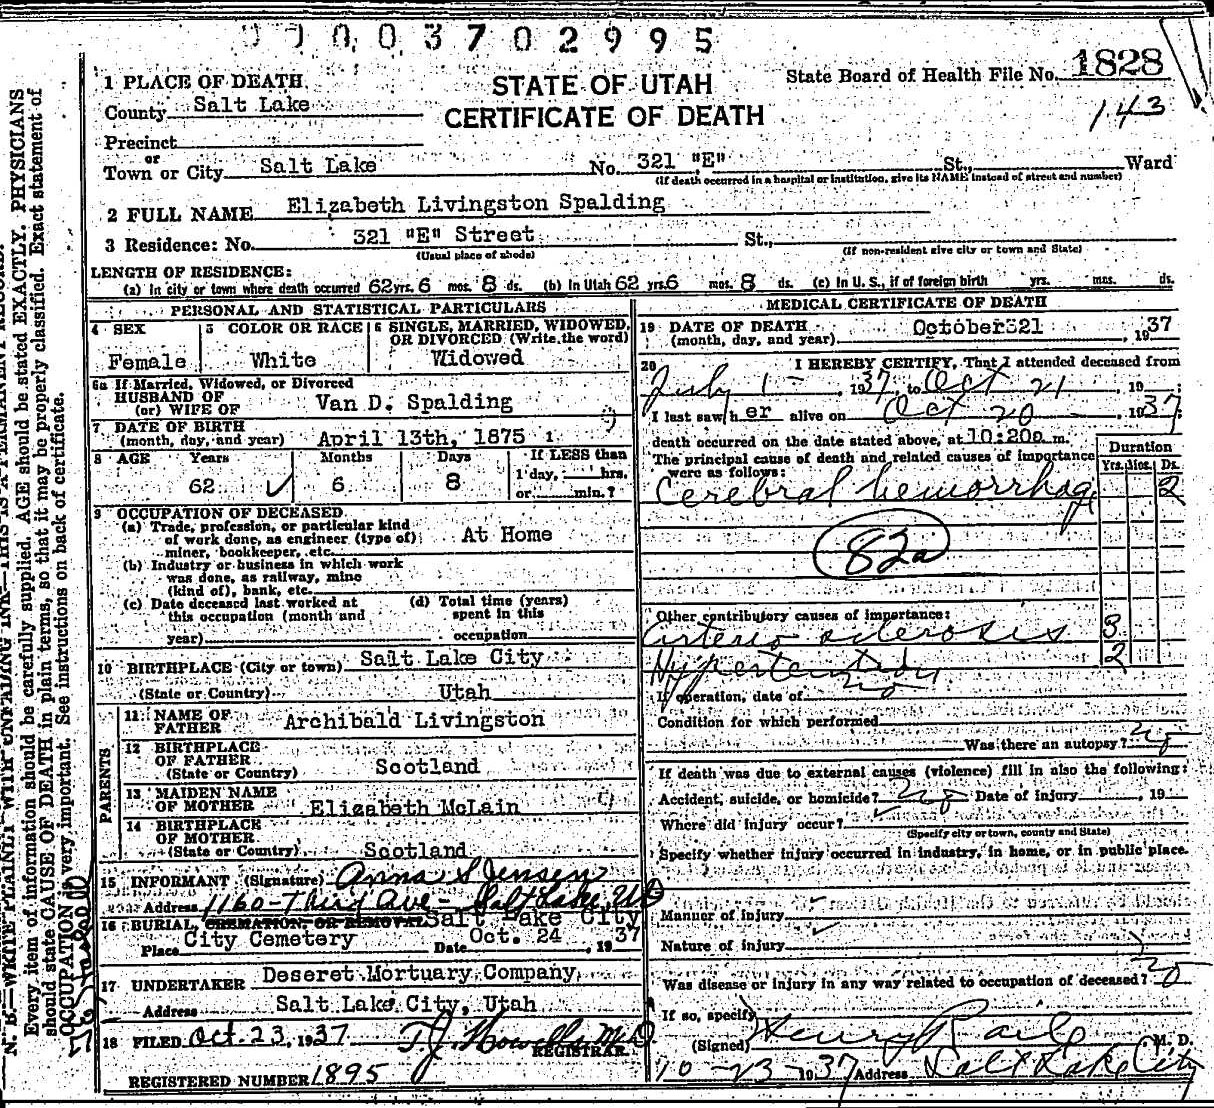 0003702995
1 PLACE OF DEATH
STATE OF UTAH
State Board of Health File No. 1828
County Salt Lake
CERTIFICATE OF DEATH
143
Precinct
or
Town or City Salt Lake No. 321 "E" St., Ward
(If death occurred in a hospital or institution, give its NAME instead of street and number)
2 FULL NAME Elizabeth Livingston Spalding
3 Residence: No. 321 "E" Street St.,
(Usual place of abode) (If non-resident give city or town and State)
LENGTH OF RESIDENCE:
(a) In city or town where death occurred 62 yrs. 6 mos. 8 ds. (b) In Utah 62 yrs. 6 mos. 8 ds. (c) In U. S., if of foreign birth yrs. mos. ds.
PERSONAL AND STATISTICAL PARTICULARS
4 SEX Female
5 COLOR OR RACE White
6 SINGLE, MARRIED, WIDOWED, OR DIVORCED (Write the word) Widowed
6a If Married, Widowed, or Divorced
HUSBAND OF
(or) WIFE OF Van D. Spalding
7 DATE OF BIRTH
(month, day, and year) April 13th, 1875
8 AGE Years Months Days If LESS than
62 6 8 1 day, hrs.
or min.?
9 OCCUPATION OF DECEASED
(a) Trade, profession, or particular kind
of work done, as engineer (type of) At Home
miner, bookkeeper, etc.
(b) Industry or business in which work
was done, as railway, mine
(kind of), bank, etc.
(c) Date deceased last worked at
this occupation (month and
year)
(d) Total time (years)
spent in this
occupation
10 BIRTHPLACE (City or town) Salt Lake City
(State or Country) Utah
PARENTS
11 NAME OF
FATHER Archibald Livingston
12 BIRTHPLACE
OF FATHER
(State or Country) Scotland
13 MAIDEN NAME
OF MOTHER Elizabeth McLain
14 BIRTHPLACE
OF MOTHER
(State or Country) Scotland
15 INFORMANT (Signature) Anna S Jensen
Address 1160-Third Ave - Salt Lake,
16 BURIAL, CREMATION, OR REMOVAL Salt Lake City
Place City Cemetery Date Oct. 24, 1937
17 UNDERTAKER Deseret Mortuary Company
Address Salt Lake City, Utah
18 FILED Oct. 23, 1937 T.J. Howells M.D.
REGISTRAR.
REGISTERED NUMBER 1895
MEDICAL CERTIFICATE OF DEATH
19 DATE OF DEATH
(month, day, and year) October 21, 1937
20 I HEREBY CERTIFY, That I attended deceased from
July 1 - 1937, to Oct 21 19
I last saw her alive on Oct 20 - , 1937;
death occurred on the date stated above, at 10:20 m.
The principal cause of death and related causes of importance
were as follows:
Duration
Yrs. Mos. Ds.
Cerebral hemorrhage 2
82a
Other contributory causes of importance:
Arterio sclerosis 3
2
If operation, date of no
Condition for which performed
Was there an autopsy? no
If death was due to external causes (violence) fill in also the following:
Accident, suicide, or homicide? no Date of injury , 19
Where did injury occur?
(Specify city or town, county and State)
Specify whether injury occurred in industry, in home, or in public place.
Manner of injury
Nature of injury
Was disease or injury in any way related to occupation of deceased? no
If so, specify
(Signed) Henry Raile M. D.
10-23-1937 Address Salt Lake City
N. B.—WRITE PLAINLY WITH UNFADING INK—THIS IS A PERMANENT RECORD.
Every item of information should be carefully supplied. AGE should be stated EXACTLY. PHYSICIANS
should state CAUSE OF DEATH in plain terms, so that it may be properly classified. Exact statement of
OCCUPATION is very important. See instructions on back of certificate.